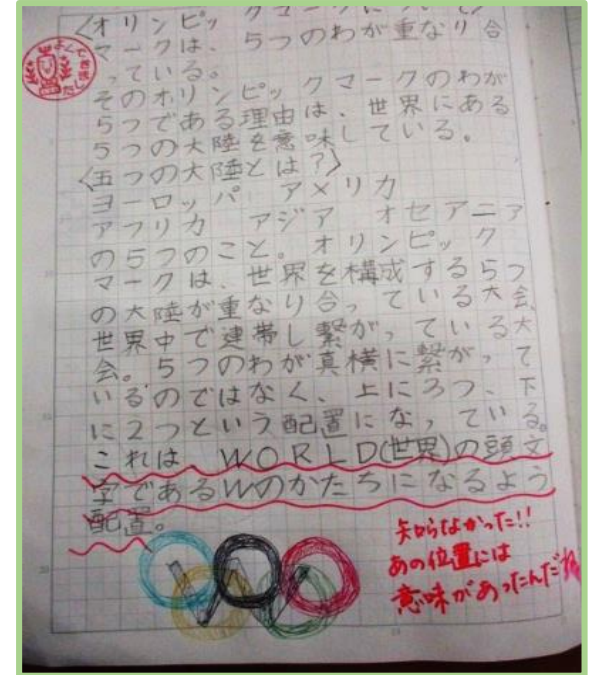 〈オリンピックマークについて〉
マークは、5つのわが重なり合
っている。
そのオリンピックマークのわが
5つである理由は、世界にある
5つの大陸を意味している。
〈五つの大陸とは?〉
ヨーロッパ アメリカ
アフリカ アジア オセアニア
の5つのこと。オリンピック
マークは、世界を構成する5つ
の大陸が重なり合っている大会、
世界中で連帯し繋がっている大
会。5つのわが真横に繋がって
いるのではなく、上に3つ、下
に2つという配置になっている。
これは、WORLD(世界)の頭文
字であるWのかたちになるよう
配置。
知らなかった!!
あの位置には
意味があったんだね